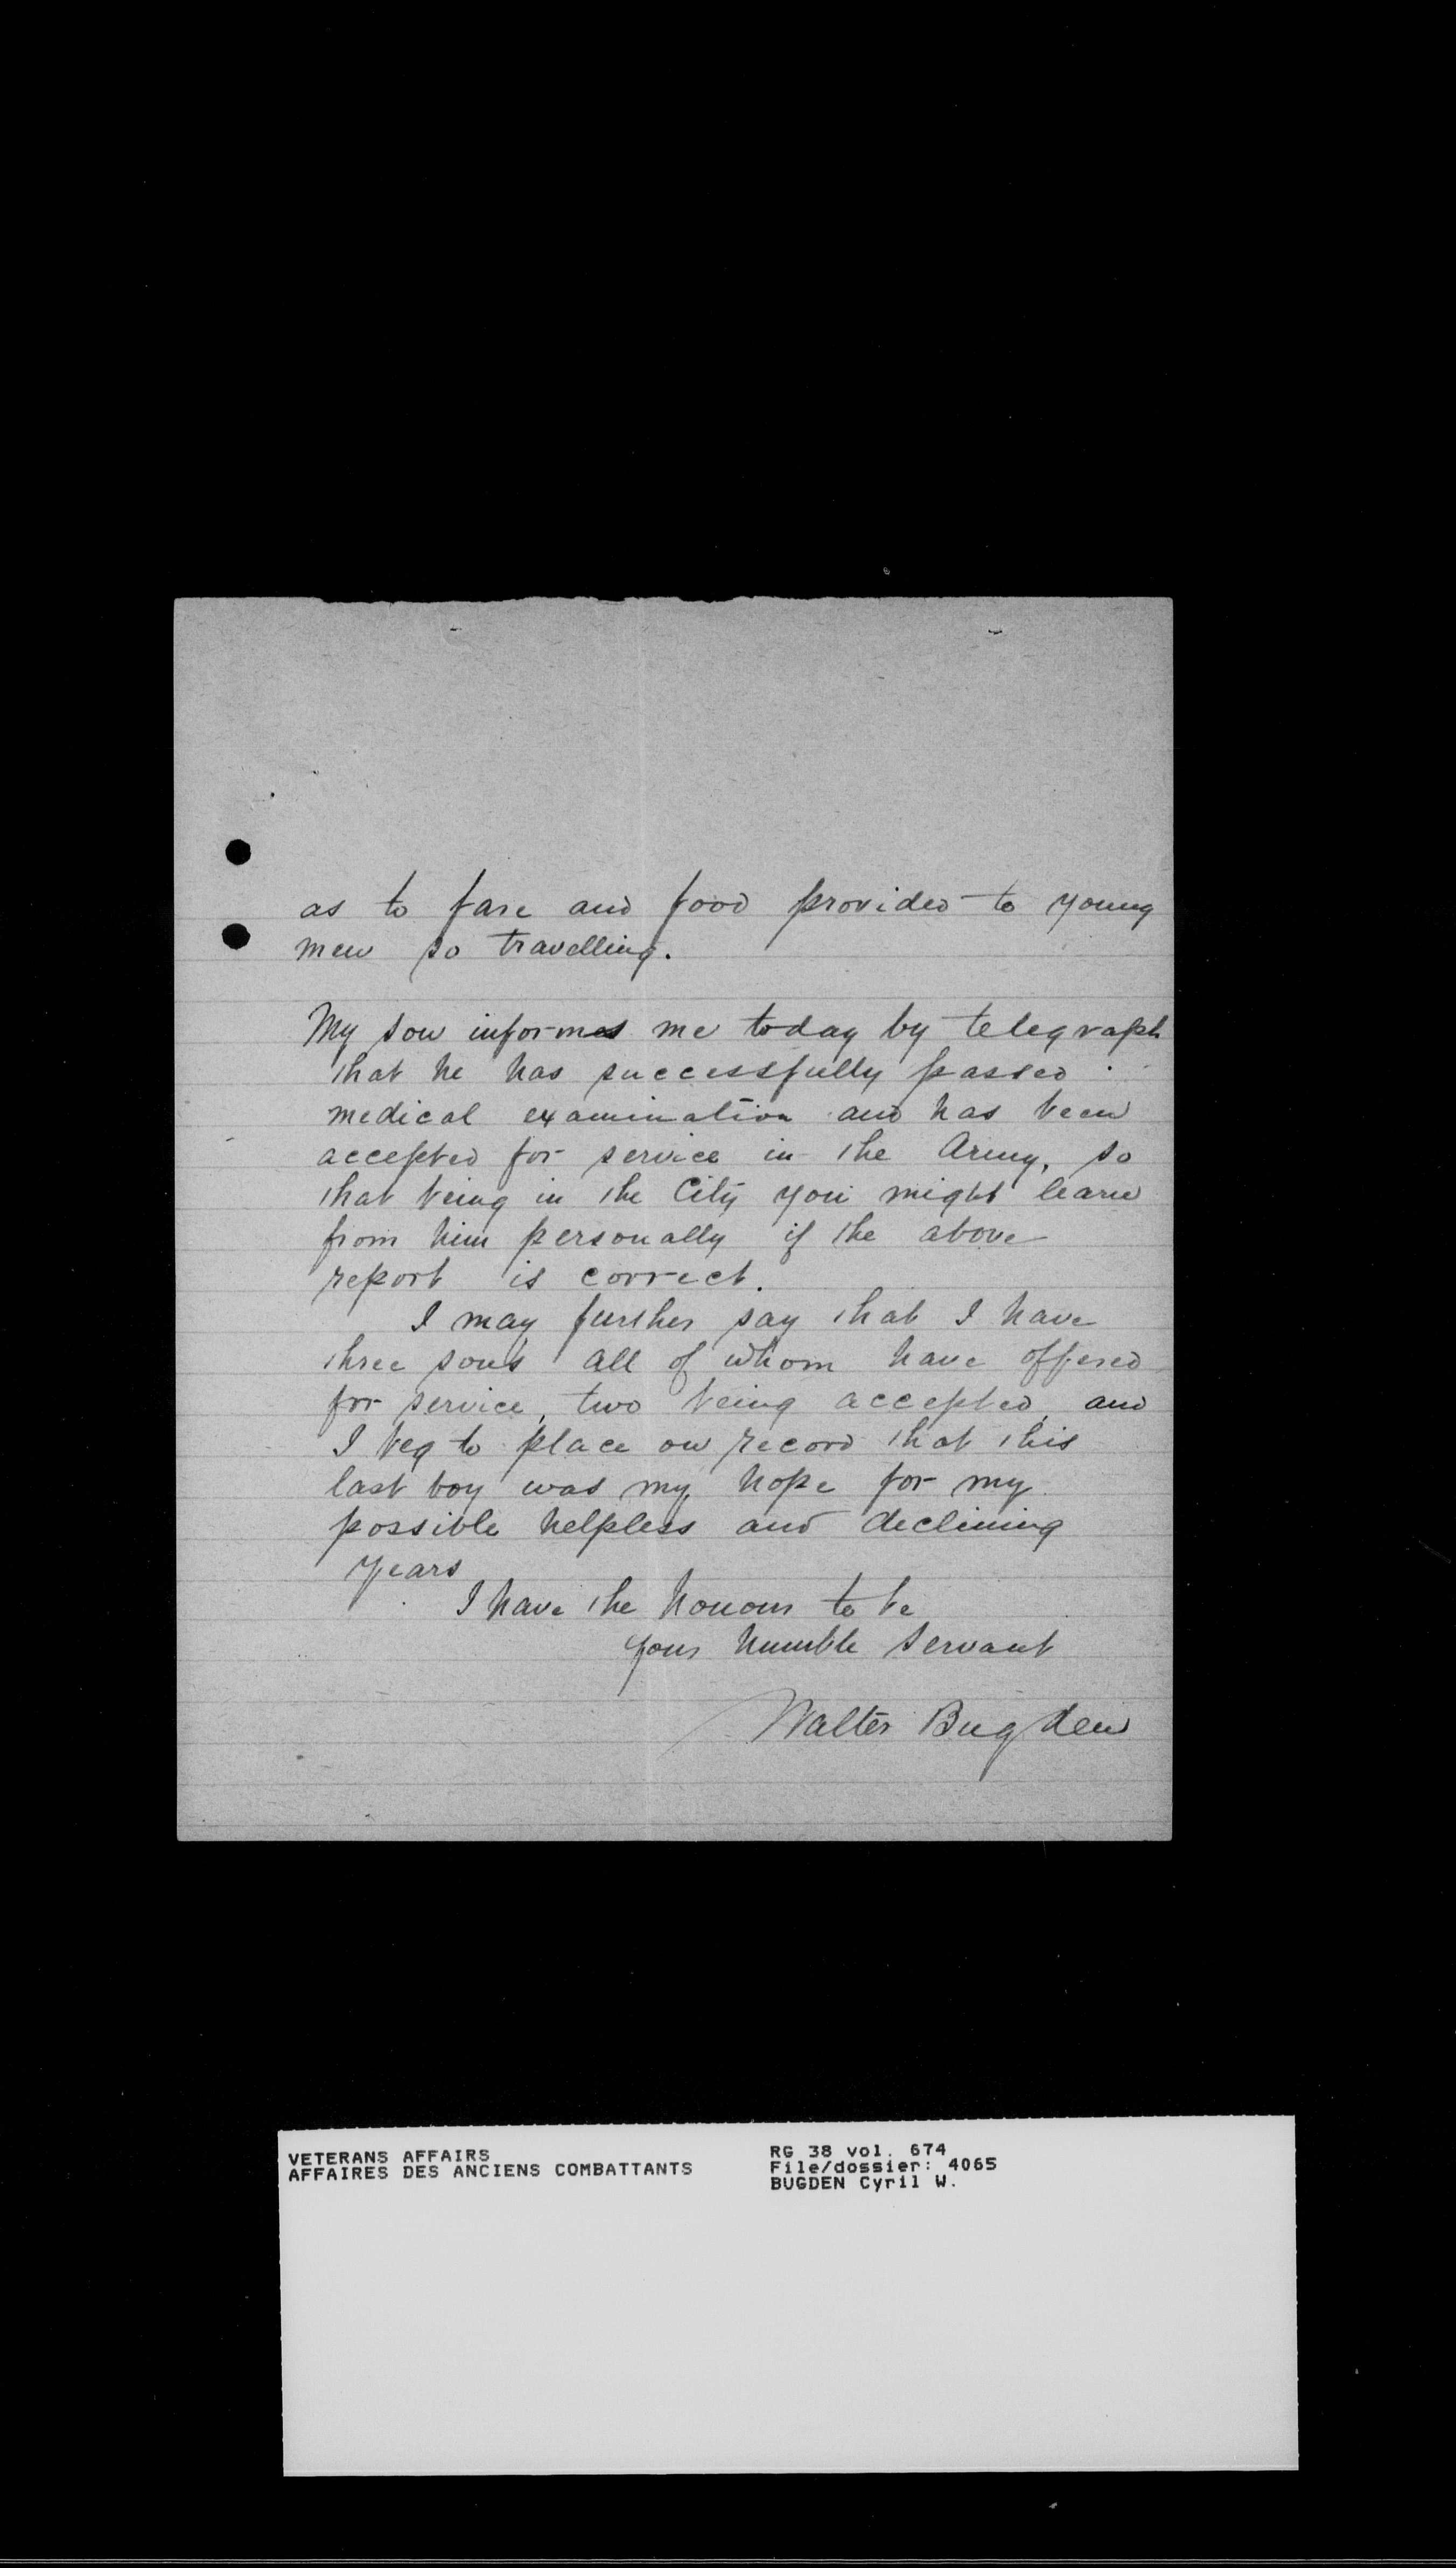 as to fare and food provided to young
men so travelling.
My son informes me today by telegraph
that he has successfully passed
medical examination and has been
accepted for service in the Army, so
that being in the City you might learn
from him personally if the above
report is correct.
I may further say that I have
three sons all of whom have offered
for service, two being accepted, and
I beg to place on record that this
last boy was my hope for my
possible helpless and declining
years
I have the honour to be
your humble servant
Walter Bugden
VETERANS AFFAIRS
AFFAIRES DES ANCIENS COMBATTANTS
RG 38 vol. 674
File/dossier: 4065
BUGDEN Cyril W.